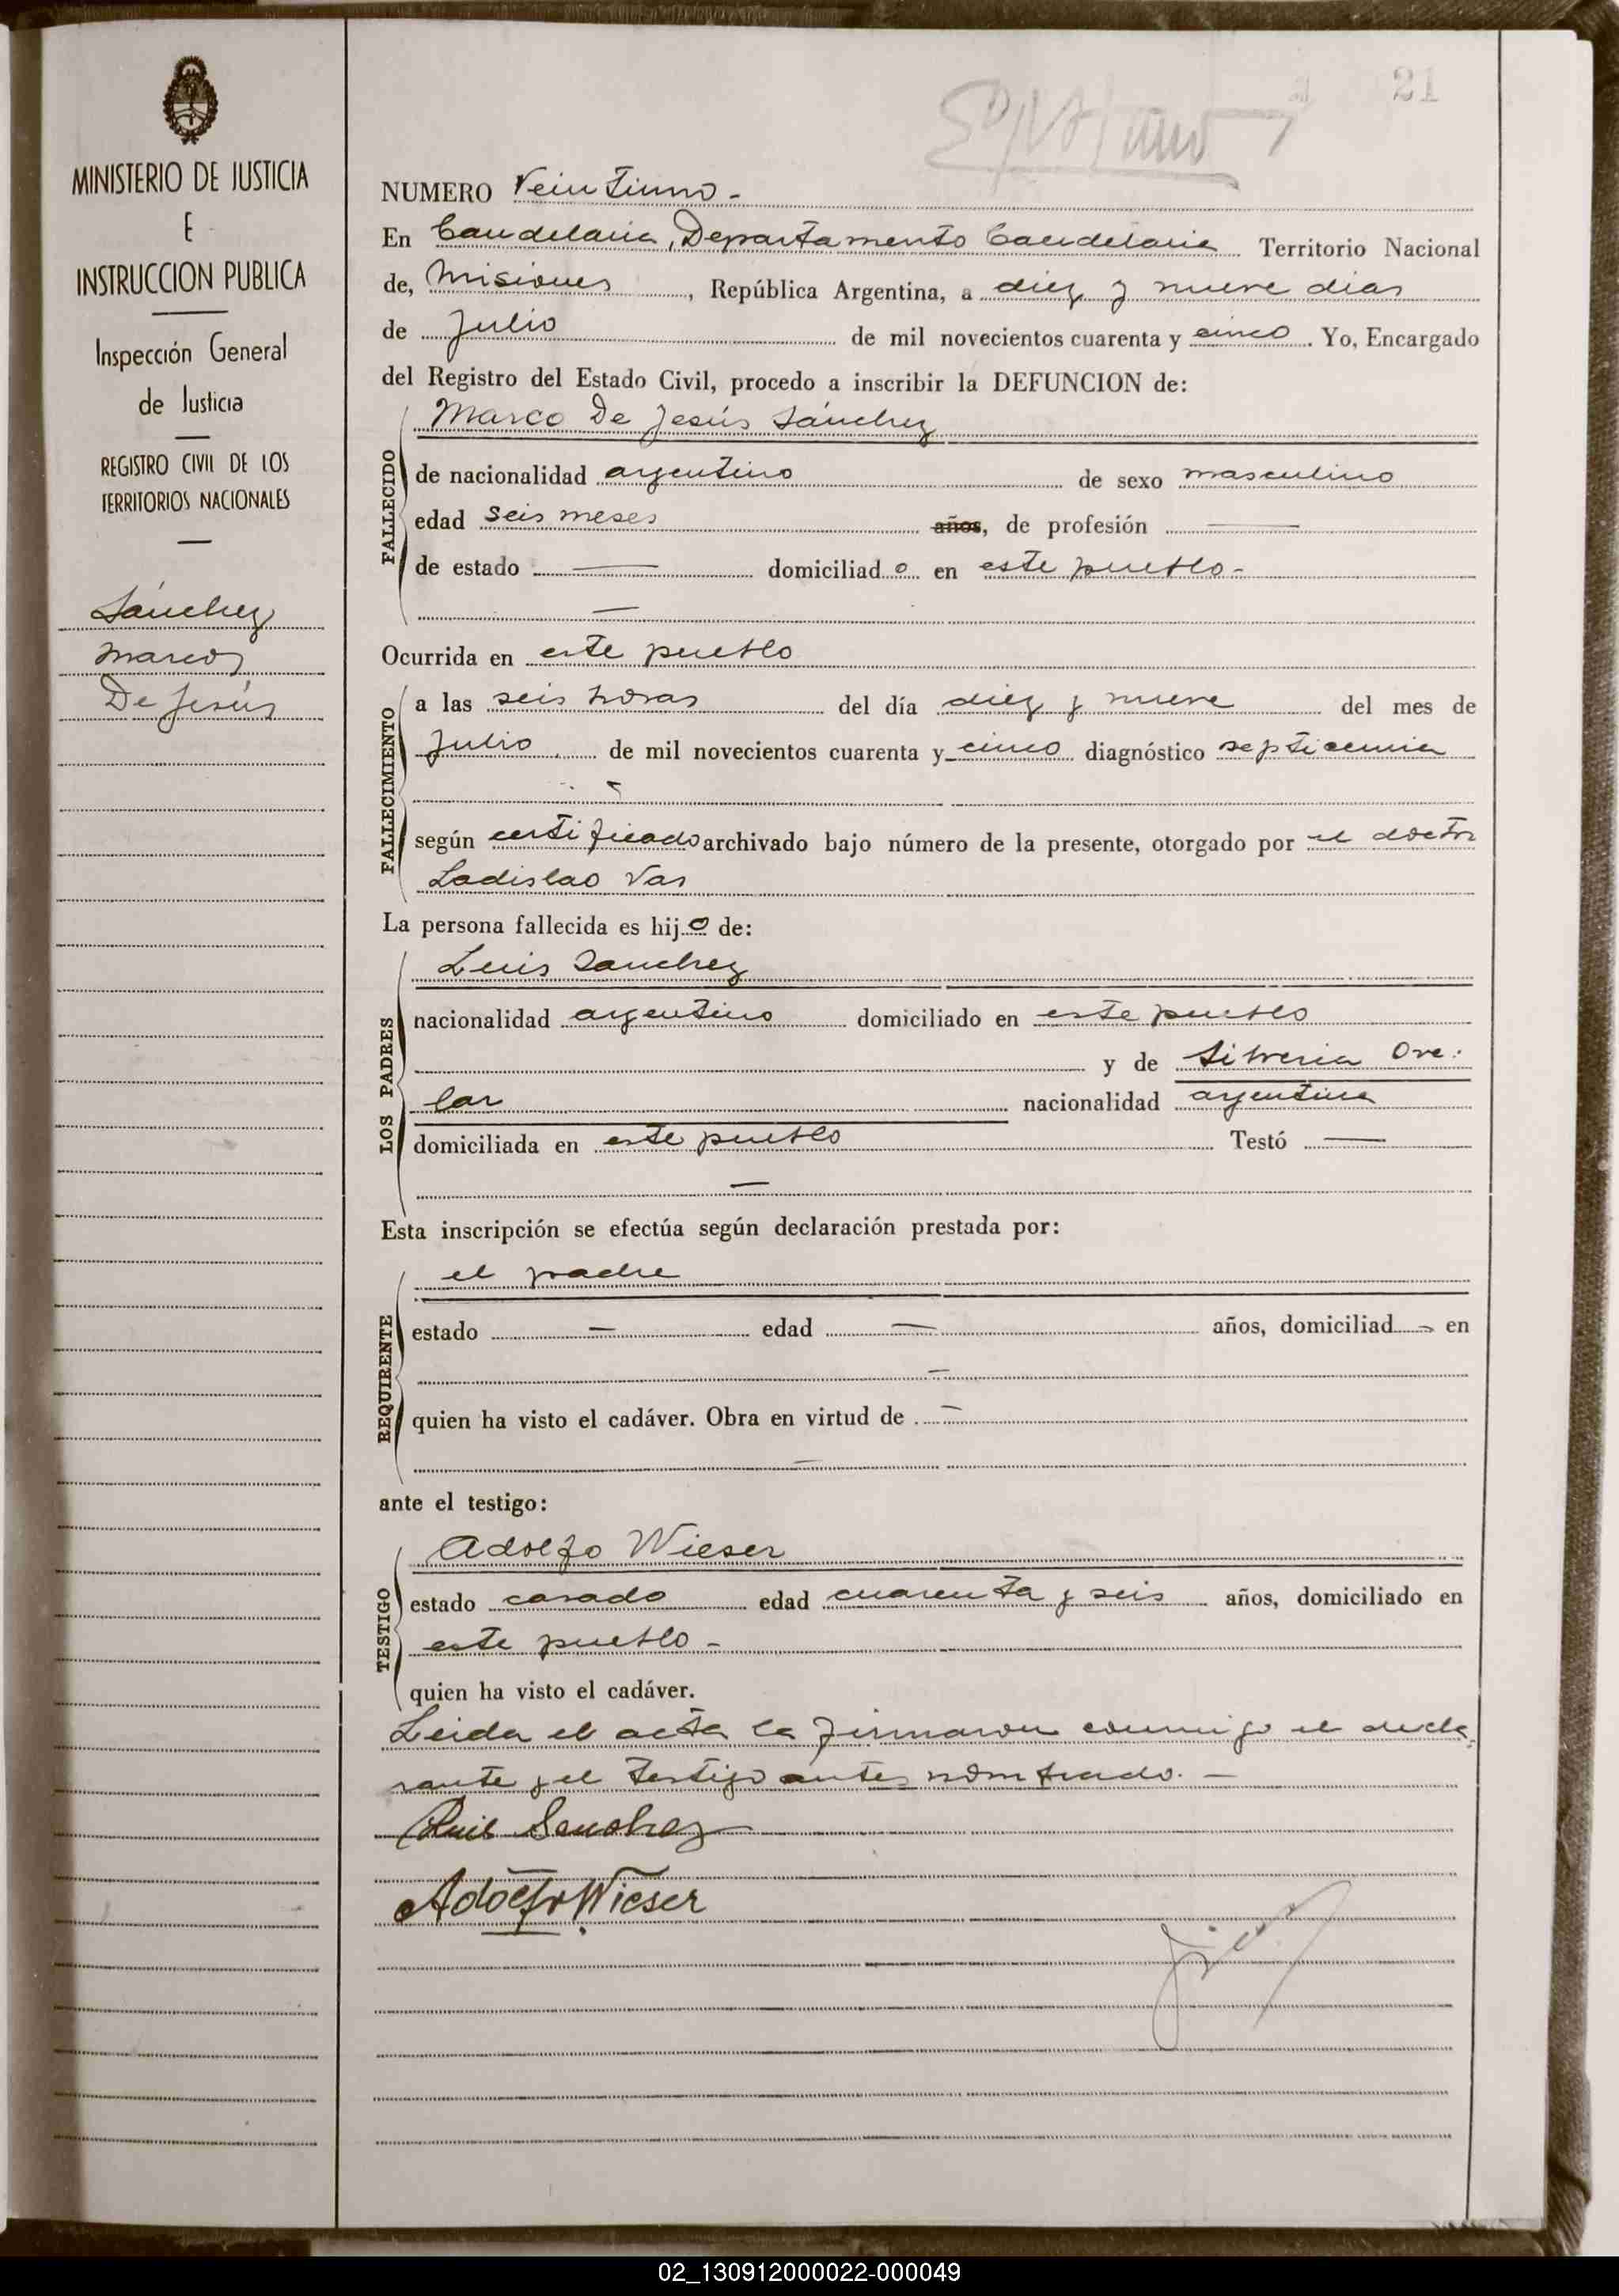 21
MINISTERIO DE JUSTICIA
E
INSTRUCCION PUBLICA
Inspección General
de Justicia
REGISTRO CIVIL DE LOS
TERRITORIOS NACIONALES
Sánchez
Marcos
De Jesús
NUMERO Veintiuno -
En Candelaria, Departamento Candelaria Territorio Nacional
de, Misiones, República Argentina, a diez y nueve dias
de Julio de mil novecientos cuarenta y cinco. Yo, Encargado
del Registro del Estado Civil, procedo a inscribir la DEFUNCION de:
Marco De Jesús Sánchez
FALLECIDO
de nacionalidad argentino de sexo masculino
edad seis meses años, de profesión —
de estado — domiciliado en este pueblo -
—
Ocurrida en este pueblo
FALLECIMIENTO
a las seis horas del día diez y nueve del mes de
Julio de mil novecientos cuarenta y cinco diagnóstico septicemia
según certificado archivado bajo número de la presente, otorgado por el doctor
Ladislao Vas
La persona fallecida es hijo de:
LOS PADRES
Luis Sanchez
nacionalidad argentino domiciliado en este pueblo
y de Silveria Ove-
lar nacionalidad argentina
domiciliada en este pueblo Testó —
—
Esta inscripción se efectúa según declaración prestada por:
REQUIRENTE
el padre
estado — edad — años, domiciliad — en
—
quien ha visto el cadáver. Obra en virtud de . —
—
ante el testigo:
TESTIGO
Adolfo Wieser
estado casado edad cuarenta y seis años, domiciliado en
este pueblo -
quien ha visto el cadáver.
Leida el acta la firmaron conmigo el decla-
rante y el testigo antes nombrado. -
Luis Sanchez
Adolfo Wieser
02_130912000022-000049